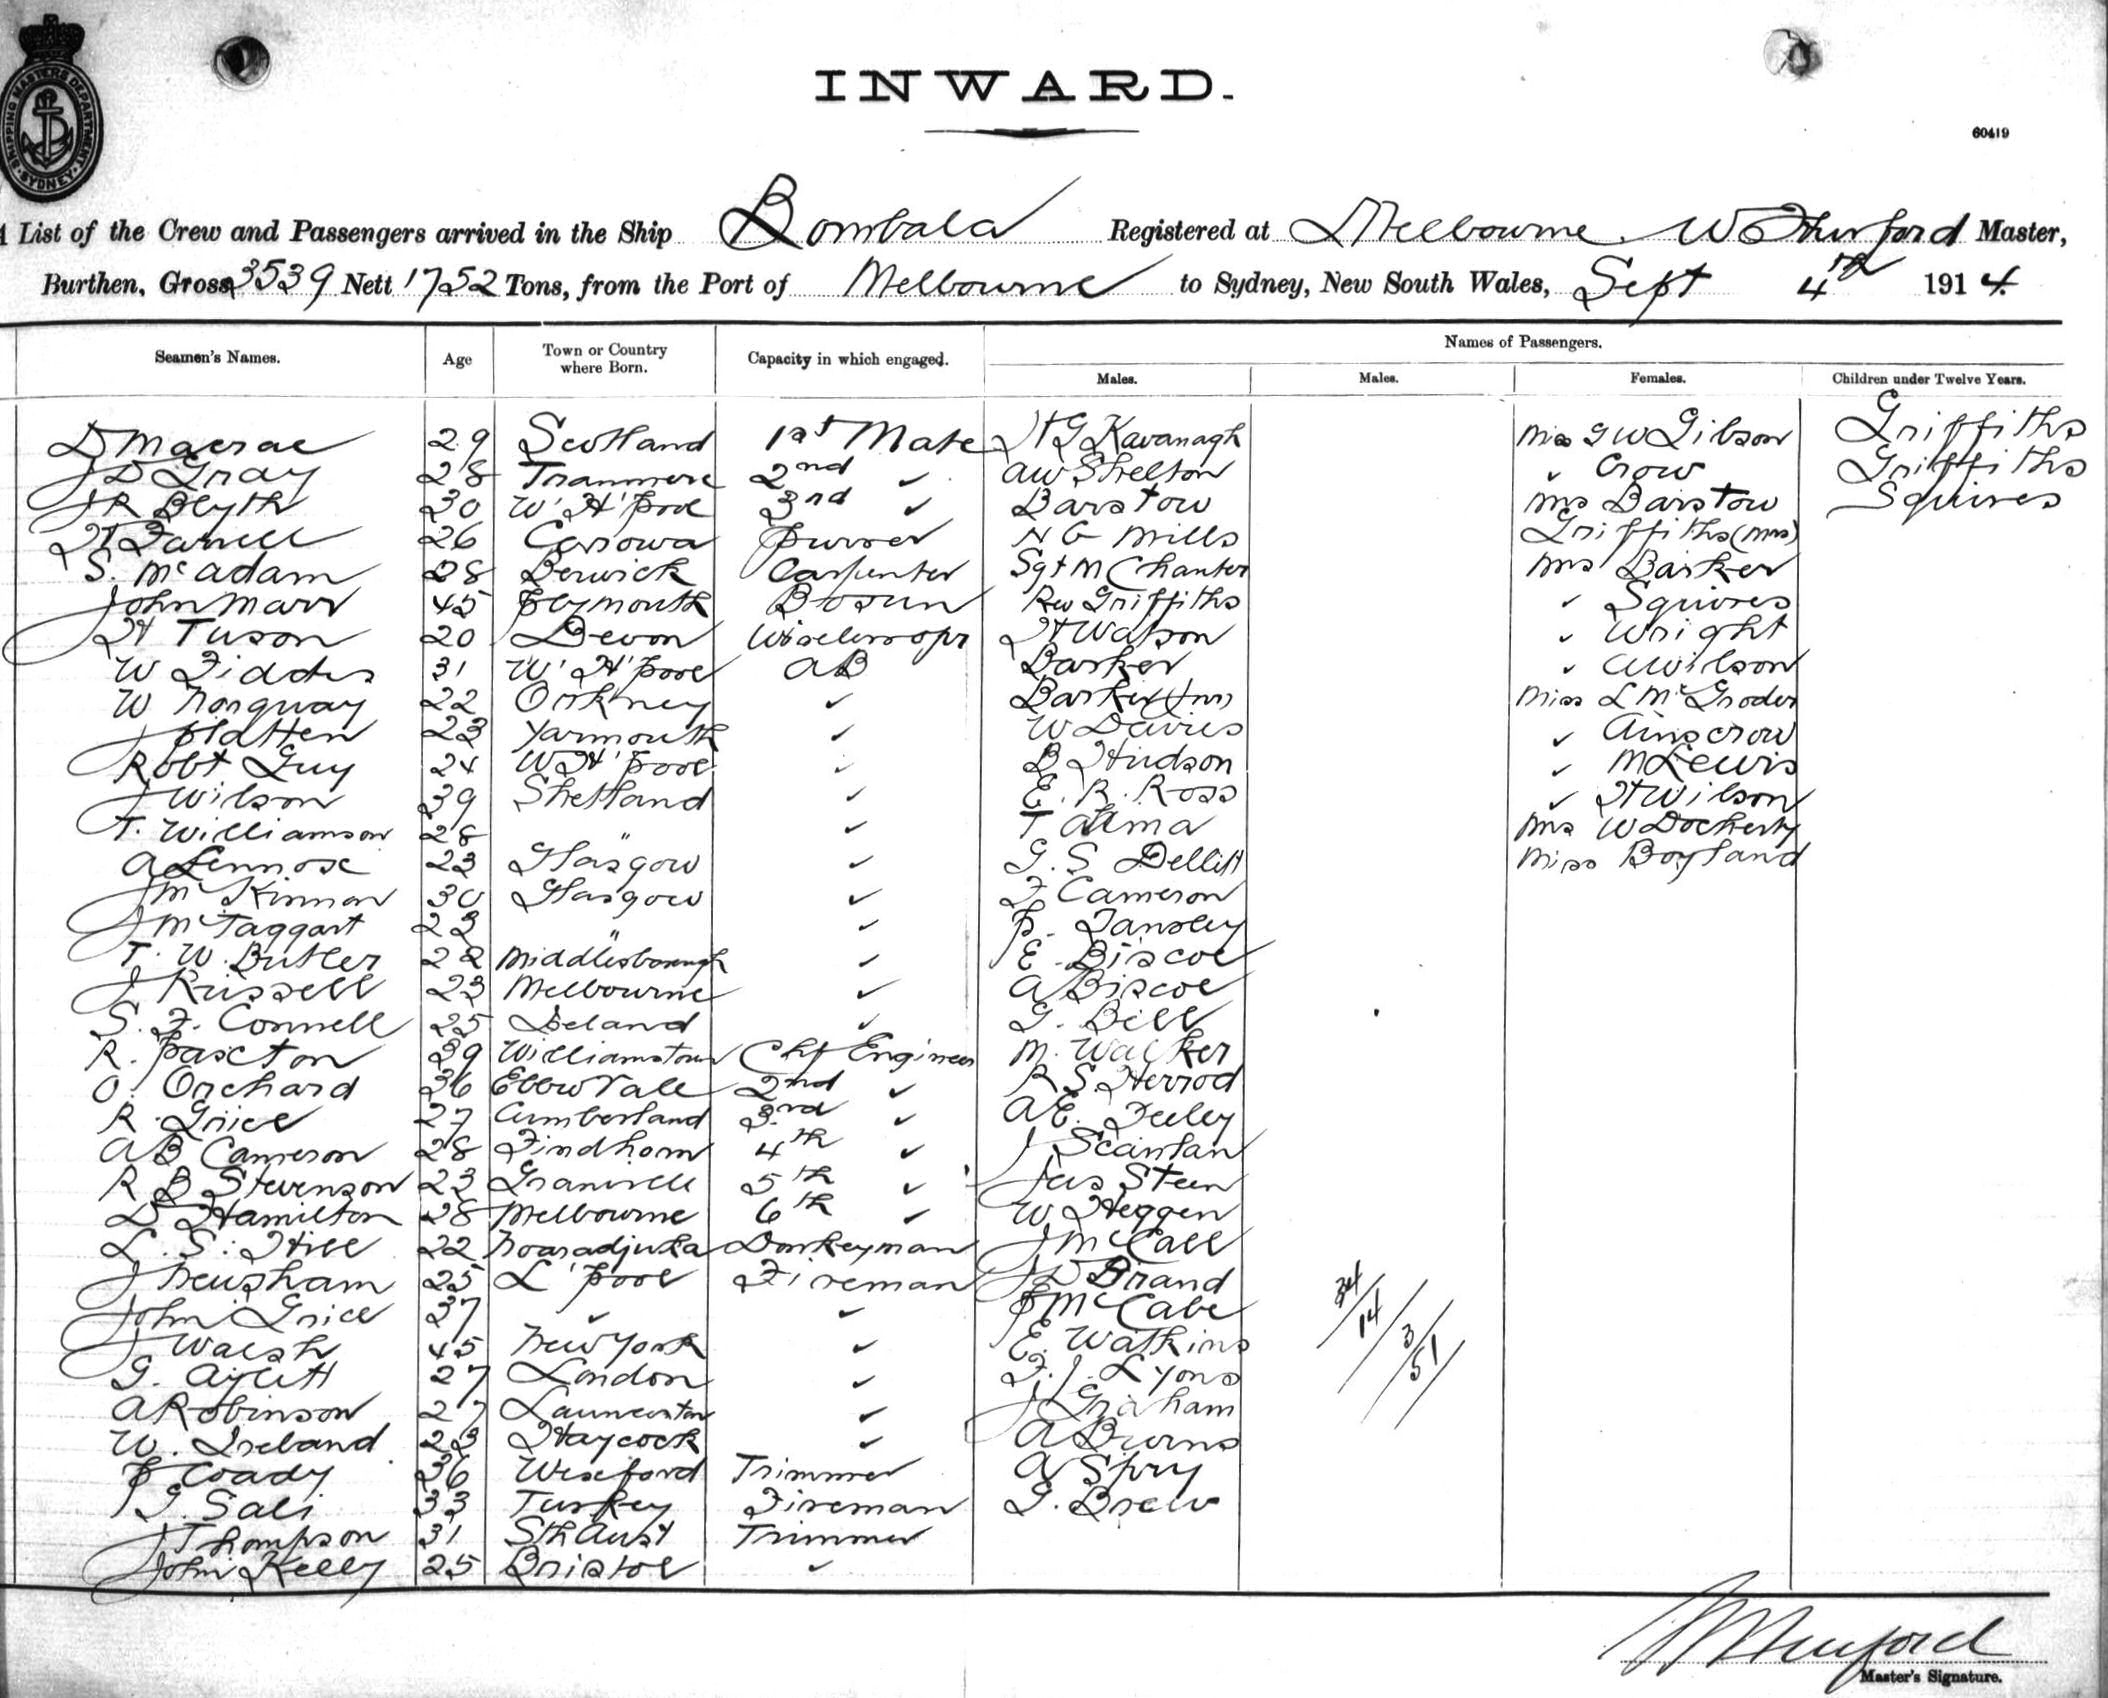 SHIPPING MASTERS DEPARTMENT
SYDNEY
INWARD.
60419
List of the Crew and Passengers arrived in the Ship Bombala Registered at Melbourne. Master,
Burthen, Gross 3539 Nett 1752 Tons, from the Port of Melbourne to Sydney, New South Wales, Sept 4th 1914.
Seamen's Names. Age Town or Country where Born. Capacity in which engaged. Names of Passengers.
Males. Males. Females. Children under Twelve Years.
D Macrae 29 Scotland 1st Mate H G Kavanagh Miss G W Gibson Griffiths
J D Gray 28 Tranmere 2nd ✓ A W Shelton ✓ Crow Griffiths
J R Blyth 30 W' H' pool 3rd ✓ Barstow Mrs Barstow Squires
H Farrell 26 Corowa Purser N G Mills Griffiths (Mrs)
S. McAdam 28 Berwick Carpenter Sgt M Chanter Mrs Barker
John Marr 45 Plymouth Bosun Rev Griffiths ✓ Squires
H Tuson 20 Devon Wireless opr H Watson ✓ Wright
W Fiddes 31 W' H' pool A B Barker ✓ A Wilson
W Norquay 22 Orkney ✓ Barker (Jnr) Miss L McGroder
J Platten 23 Yarmouth ✓ W Davies ✓ Ainscrow
Robt Guy 24 W H' pool ✓ B Hudson ✓ M Lewis
J Wilson 39 Shetland ✓ E. R. Ross ✓ H Wilson
T. Williamson 28 " ✓ T Mrs W Docherty
A Lennox 23 Glasgow ✓ G. S. Dellitt Miss Boyland
J McKinnon 30 Glasgow ✓ F Cameron
J McTaggart 23 " ✓ P. Tansley
T. W. Butler 22 Middlesborough ✓ E. Biscoe
J Russell 23 Melbourne ✓ A Biscoe
S. F. Connell 25 Ireland ✓ G. Bill
R. Paxton 39 Williamstown Chf Engineer M. Walker
O. Orchard 36 Ebbw Vale 2nd ✓ R S Herrod
R. Grice 27 Cumberland 3rd ✓ A E. Feeley
A B Cameron 28 Findhorn 4th ✓ J Scanlan
R B Stevenson 23 Granville 5th ✓ Jas Steen
D Hamilton 28 Melbourne 6th ✓ W Heggen
L. S. Hill 22 Donkeyman J McCall
J Neusham 25 L'pool Fireman J D Brand
John Grice 37 ✓ ✓ P McCabe
J Walsh 45 New York ✓ E. Watkins
G. Aylett 27 London ✓ F. J. Lyons
A Robinson 27 Launceston ✓ J Graham
W. Ireland 23 Haycock ✓ A Burns
P Coady 36 Wexford Trimmer A Spry
G. Sali 33 Turkey Fireman G. Brew
J Thompson 31 Sth Aust Trimmer
John Kelly 25 Bristol ✓
34/14/3/51/
Master's Signature.